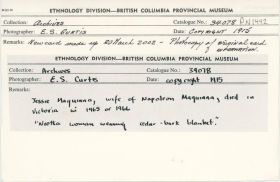 ETHNOLOGY DIVISION—BRITISH COLUMBIA PROVINCIAL MUSEUM
Collection: Archives Catalogue No.: 34078 PN 1442
Photographer: E.S. Curtis Date: Copyright 1915
Remarks: New card made up 20 March 2002 - Photocopy of original card information.
ETHNOLOGY DIVISION—BRITISH COLUMBIA PROVINCIAL MUSEUM
Collection: Archives Catalogue No.: 34078
Photographer: E.S. Curtis Date: copyright 1915
Remarks:
Jessie Maquinna, wife of Napoleon Maquinna, died in
Victoria in 1965 or 1966
"Nootka woman wearing cedar-bark blanket."